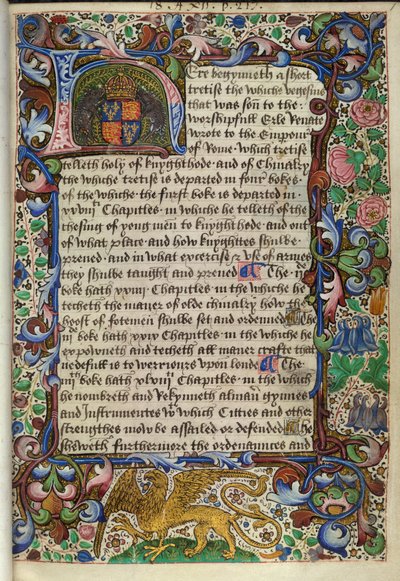 18. A XII. p. 217.
Here begynneth a short
tretise the whiche vegesius
that was son to the
worshipfull Erle Renate
wrote to the Emperour
of Rome. Which tretise
telleth holy of knyghthode. and of Chiualry
the whiche tretise is departed in four bokes
of the whiche the furst boke is departed in
Chapitles. in whiche he telleth of the
chesing of yong men to knyghthode. and out
of what place and how knyghttes shulbe
preued. and in what exercise & use of armes
they shulbe taught and preued The
boke hath Chapitles. in the whiche he
techeth the maner of olde chiualry how the
hoost of fotemen shulbe set and ordeined The
boke hath Chapitles in the whiche he
expowneth and techeth all maner crafte that
nedefull is to werriours upon londe The
boke hath Chapitles. in the which
he nombreth and Rekynneth alman gynnes
and Instrumentes to which Citties and other
strengthes may be assailed or defended. he
sheweth furthermore the ordenannces and